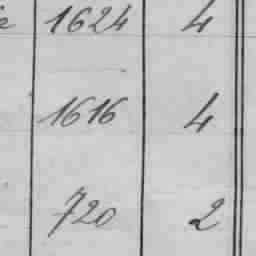 1624 4
1616 4
720 2